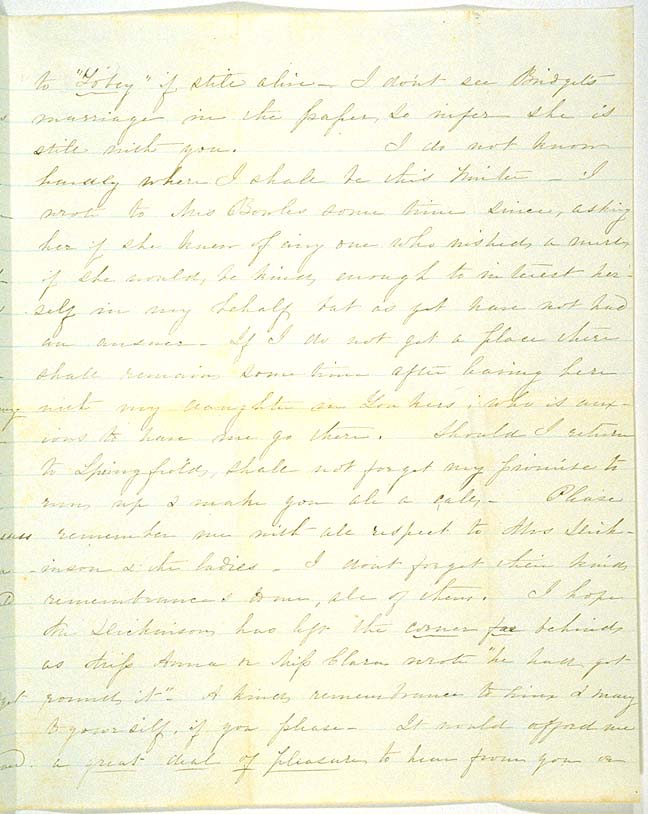 to "Tobey" if still alive - I dont see Bridget's
marriage in the paper, so infer she is
still with you. I do not know
hardly where I shall be this Winter - I
wrote to Mrs Bowles some time since, asking
her if she knew of any one who wished a nurse
if she would, be kind, enough to interest her-
self in my behalf but as yet have not had
an answer. If I do not get a place there
shall remain some time after leaving here
with my daughter in Yonkers; who is anx-
ious to have me go there. Should I return
to Springfield, shall not forget my promise to
run up & make you all a call - Please
remember me with all respect to Mrs Dick-
-inson & the ladies - I dont forget their kind
remembrances to me, all of them. I hope
Mr Dickinson has left the corner far behind
as Miss Anna or Miss Clara wrote "he had got
round it" - A kind remembrance to him & many
to yourself, if you please - It would afford me
a great deal of pleasure to hear from you or